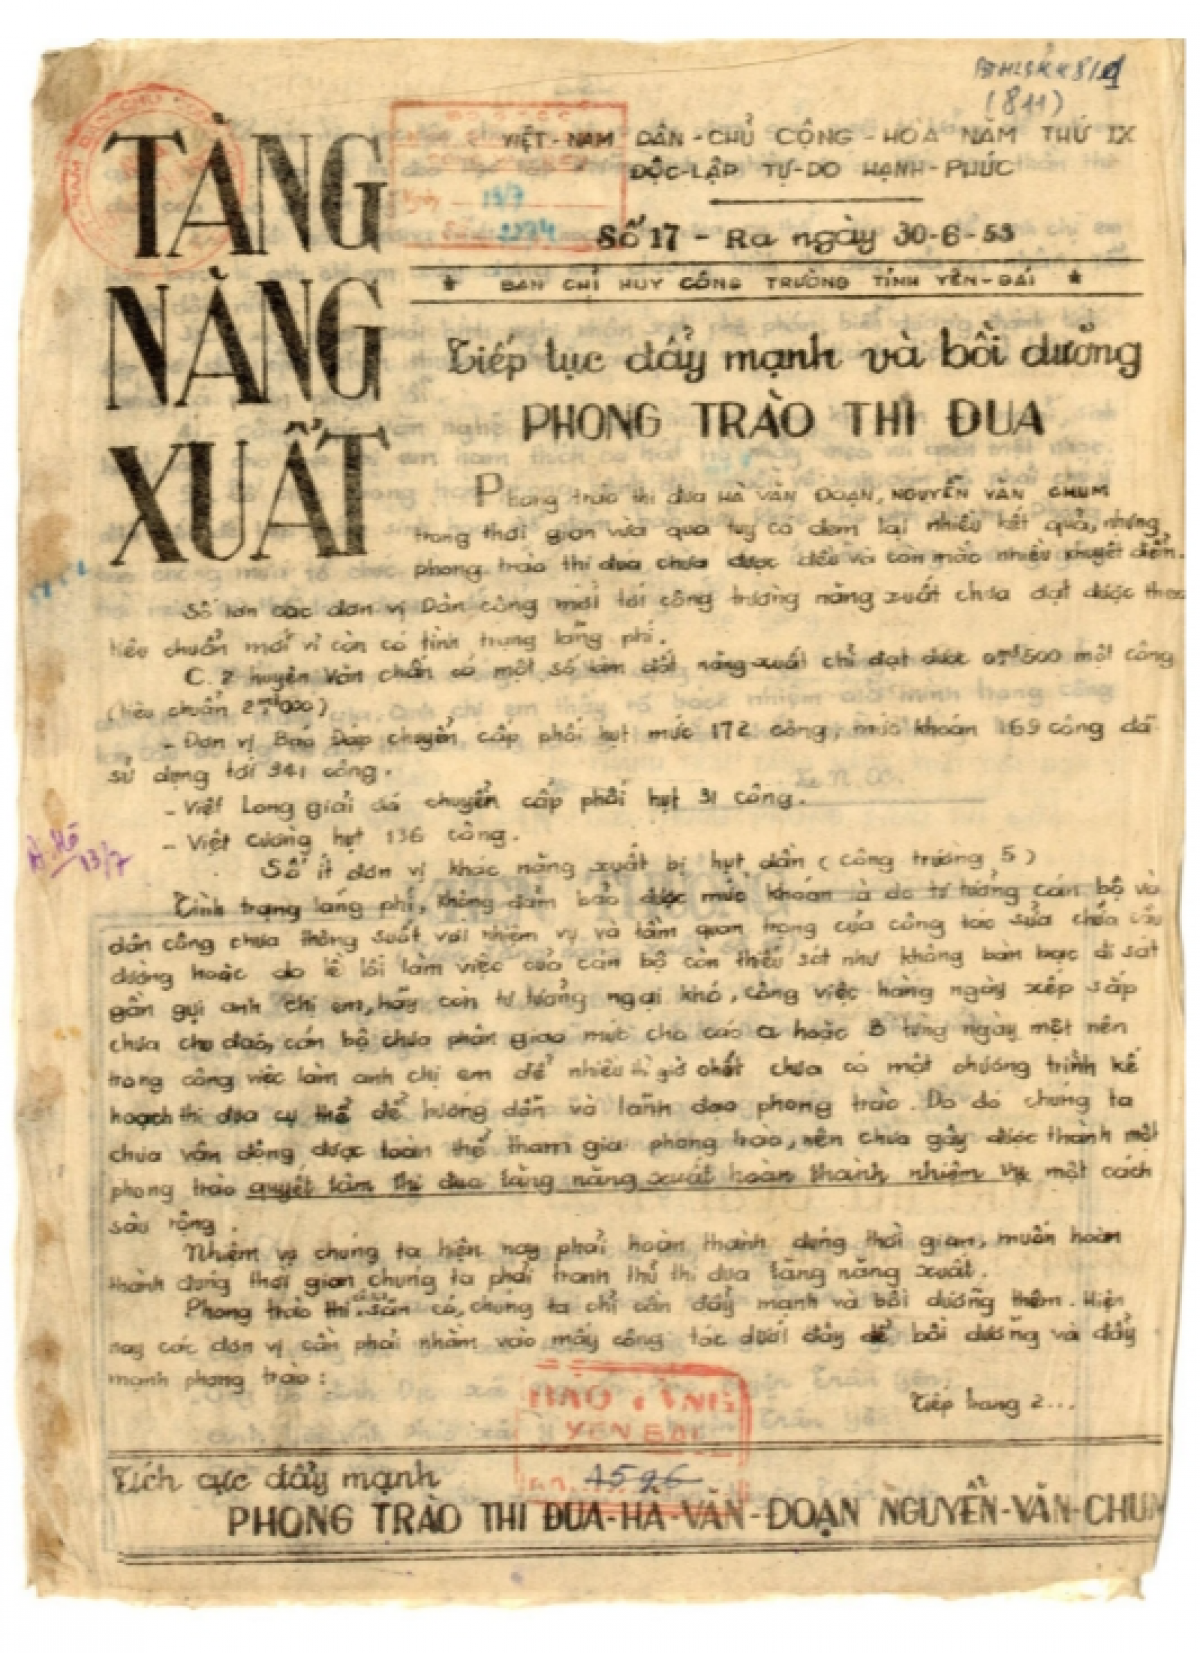 BTHLSKK 811
(811)
TĂNG
NĂNG
XUẤT
VIỆT-NAM DÂN-CHỦ CỘNG-HÒA NĂM THỨ IX
ĐỘC-LẬP TỰ-DO HẠNH-PHÚC
Ngày 13/7
Số 2274
Số 17 - Ra ngày 30-6-53
* BAN CHỈ HUY CÔNG TRƯỜNG TỈNH YÊN-BÁI *
Tiếp tục đẩy mạnh và bồi dưỡng
PHONG TRÀO THI ĐUA
Phong trào thi đua HÀ VĂN ĐOẠN, NGUYỄN VĂN CHUM
trong thời gian vừa qua tuy có đem lại nhiều kết quả, nhưng
phong trào thi đua chưa được đều và còn mắc nhiều khuyết điểm.
Số lớn các đơn vị Dân công mới tới công trường năng xuất chưa đạt được theo
tiêu chuẩn mới vì còn có tình trạng lãng phí.
C. 7 huyện Văn chấn có một số làm đất năng xuất chỉ đạt được 500 một công
(tiêu chuẩn 2 000)
- Đơn vị Báo Đáp chuyển cấp phối hụt mức 172 công, mức khoán 169 công đã
sử dụng tới 341 công.
- Việt Long giải đá chuyển cấp phối hụt 31 công.
- Việt Cường hụt 136 công.
13/7
Số ít đơn vị khác năng xuất bị hụt dần (công trường 5)
Tình trạng lãng phí, không đảm bảo được mức khoán là do tư tưởng cán bộ và
dân công chưa thông suốt với nhiệm vụ và tầm quan trọng của công tác sửa chữa cầu
đường hoặc do lề lối làm việc của cán bộ còn thiếu sót như không bàn bạc đi sát
gần gụi anh chị em, hãy còn tư tưởng ngại khó, công việc hàng ngày xếp sắp
chưa chu đáo, cán bộ chưa phân giao mức cho các A hoặc B từng ngày một nên
trong công việc làm anh chị em để nhiều thì giờ chết chưa có một chương trình kế
hoạch thi đua cụ thể để hướng dẫn và lãnh đạo phong trào. Do đó chúng ta
chưa vận động được toàn thể tham gia phong trào, nên chưa gây được thành một
phong trào quyết tâm thi đua tăng năng xuất hoàn thành nhiệm vụ một cách
sâu rộng.
Nhiệm vụ chúng ta hiện nay phải hoàn thành đúng thời gian, muốn hoàn
thành đúng thời gian chúng ta phải tranh thủ thi đua tăng năng xuất.
Phong trào thi đua sẵn có, chúng ta chỉ cần đẩy mạnh và bồi dưỡng thêm. Hiện
nay các đơn vị cần phải nhằm vào mấy công tác dưới đây để bồi dưỡng và đẩy
mạnh phong trào:
Tiếp trang 2...
BẢO TÀNG
YÊN BÁI
4596
Tích cực đẩy mạnh
PHONG TRÀO THI ĐUA-HÀ-VĂN-ĐOẠN NGUYỄN-VĂN-CHUM